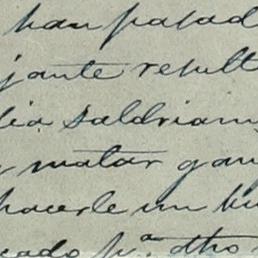 han pasad
jante result
lia saldriam
matar gan
hacerle un bu
cado p.a dho